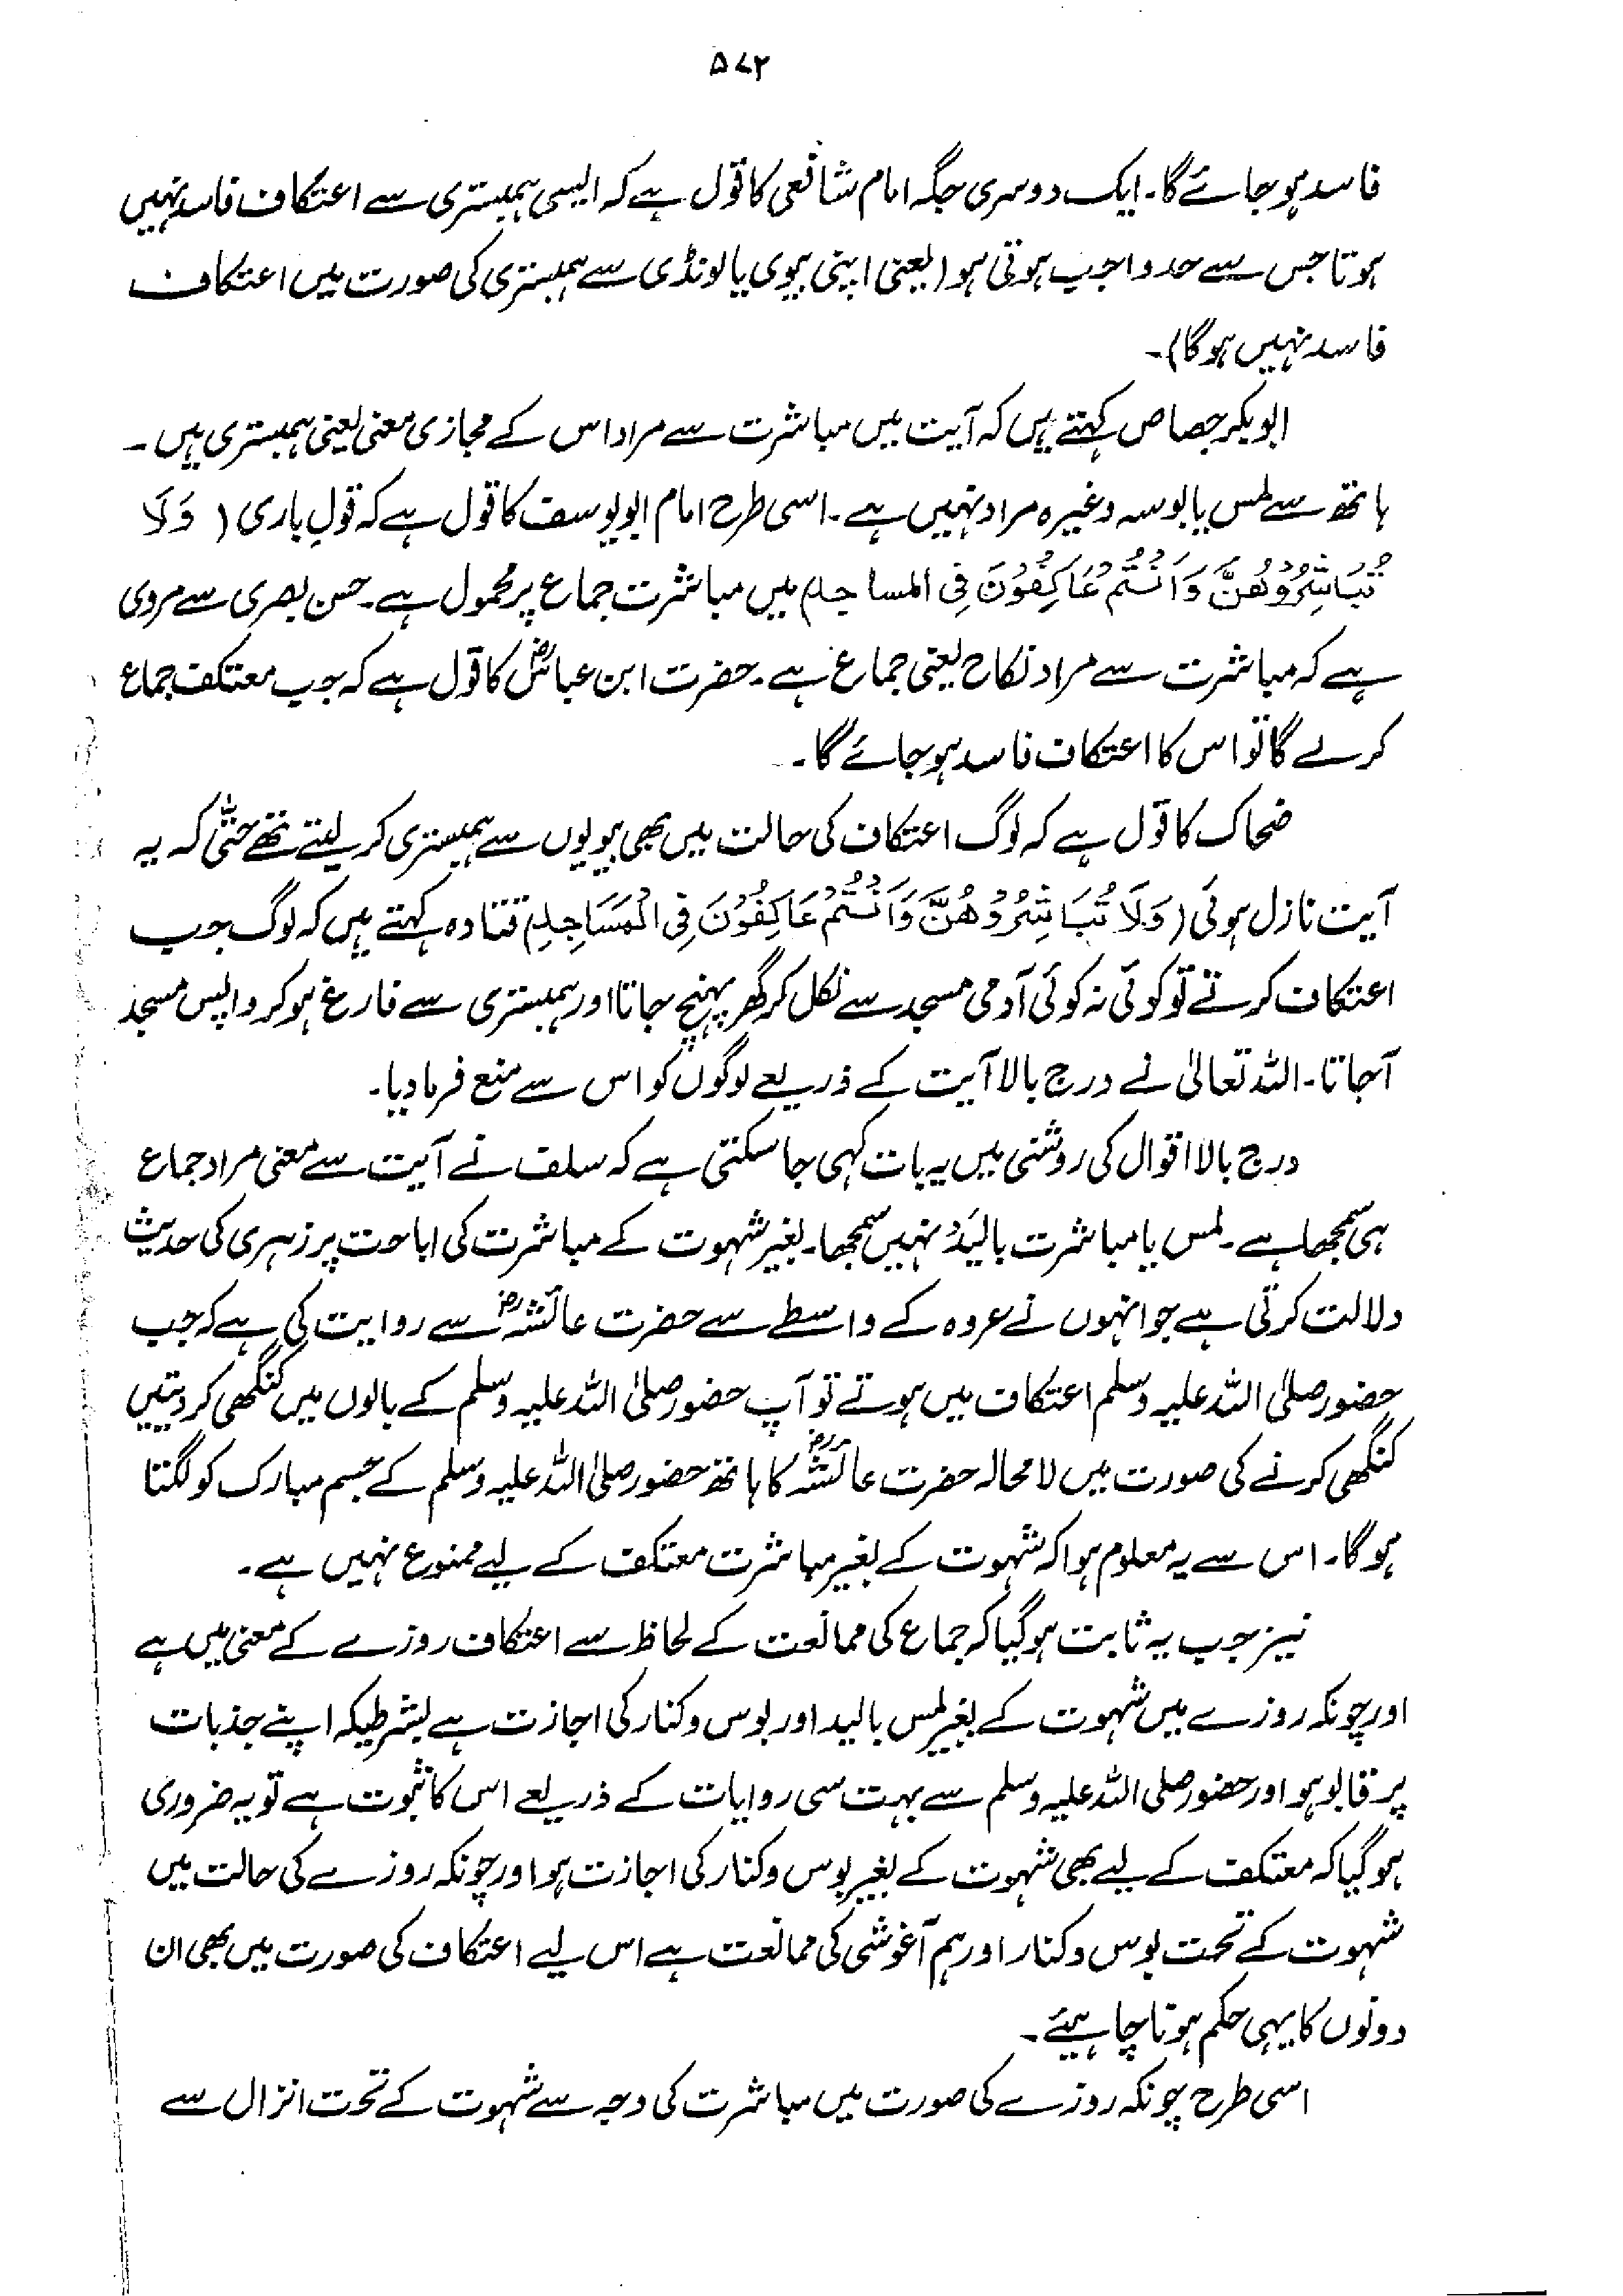 ۵۷۲
فاسد ہو جائے گا۔ ایک دوسری جگہ امام شافعی کا قول ہے کہ ایسی ہمبستری سے اعتکاف فاسد نہیں
ہوتا جس سے حد واجب ہوتی ہو (یعنی اپنی بیوی یا لونڈی سے ہمبستری کی صورت میں اعتکاف
فاسد نہیں ہوگا)۔
ابوبکر جصاص کہتے ہیں کہ آیت میں مباشرت سے مراد اس کے مجازی معنی یعنی ہمبستری ہیں۔
ہاتھ سے لمس یا بوسہ وغیرہ مراد نہیں ہے۔ اسی طرح امام ابویوسف کا قول ہے کہ قولِ باری (وَلَا
تُبَاشِرُوْهُنَّ وَاَنْتُمْ عَاكِفُوْنَ فِی المساجد) میں مباشرت جماع پر محمول ہے۔ حسن بصری سے مروی
ہے کہ مباشرت سے مراد نکاح یعنی جماع ہے۔ حضرت ابن عباسؓ کا قول ہے کہ جب معتکف جماع
کرے گا تو اس کا اعتکاف فاسد ہو جائے گا۔
ضحاک کا قول ہے کہ لوگ اعتکاف کی حالت میں بھی بیویوں سے ہمبستری کر لیتے تھے حتیٰ کہ یہ
آیت نازل ہوئی (وَلَا تُبَاشِرُوْهُنَّ وَاَنْتُمْ عَاكِفُوْنَ فِی الْمَسَاجِدِ) قتادہ کہتے ہیں کہ لوگ جب
اعتکاف کرتے تو کوئی نہ کوئی آدمی مسجد سے نکل کر گھر پہنچ جاتا اور ہمبستری سے فارغ ہو کر واپس مسجد
آجاتا۔ اللہ تعالیٰ نے درج بالا آیت کے ذریعے لوگوں کو اس سے منع فرمادیا۔
درج بالا اقوال کی روشنی میں یہ بات کہی جا سکتی ہے کہ سلف نے آیت سے معنی مراد جماع
ہی سمجھا ہے۔ لمس یا مباشرت بالیَدُ نہیں سمجھا۔ بغیر شہوت کے مباشرت کی اباحت پر زہری کی حدیث
دلالت کرتی ہے جو انہوں نے عروہ کے واسطے سے حضرت عائشہؓ سے روایت کی ہے کہ جب
حضور صلی اللہ علیہ وسلم اعتکاف میں ہوتے تو آپ حضور صلی اللہ علیہ وسلم کے بالوں میں کنگھی کر دیتیں
کنگھی کرنے کی صورت میں لامحالہ حضرت عائشہؓ کا ہاتھ حضور صلی اللہ علیہ وسلم کے جسم مبارک کو لگتا
ہوگا۔ اس سے یہ معلوم ہوا کہ شہوت کے بغیر مباشرت معتکف کے لیے ممنوع نہیں ہے۔
نیز جب یہ ثابت ہوگیا کہ جماع کی ممانعت کے لحاظ سے اعتکاف روزے کے معنی میں ہے
اور چونکہ روزے میں شہوت کے بغیر لمس بالید اور بوس وکنار کی اجازت ہے بشرطیکہ اپنے جذبات
پر قابو ہو اور حضور صلی اللہ علیہ وسلم سے بہت سی روایات کے ذریعے اس کا ثبوت ہے تو یہ ضروری
ہوگیا کہ معتکف کے لیے بھی شہوت کے بغیر بوس وکنار کی اجازت ہو اور چونکہ روزے کی حالت میں
شہوت کے تحت بوس وکنار اور ہم آغوشی کی ممانعت ہے اس لیے اعتکاف کی صورت میں بھی ان
دونوں کا یہی حکم ہونا چاہیئے۔
اسی طرح چونکہ روزے کی صورت میں مباشرت کی وجہ سے شہوت کے تحت انزال سے